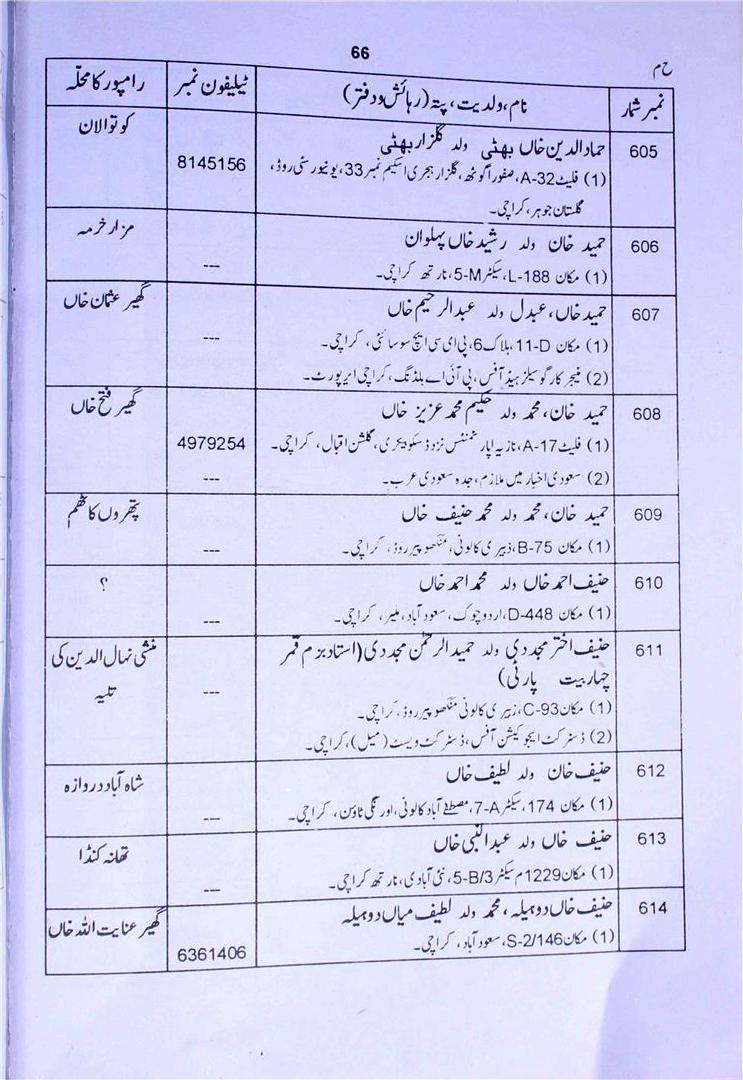 66
ح م
نمبر شمار | نام، ولدیت، پتہ (رہائش و دفتر) | ٹیلیفون نمبر | رامپور کا محلّہ
605 | حماد الدین خاں بھٹی ولد گلزار بھٹی | کوتوالان
(1) فلیٹ A-32، صفورا گوٹھ، گلزار ہجری اسکیم نمبر 33، یونیورسٹی روڈ، | 8145156
گلستان جوہر، کراچی۔
606 | حمید خان ولد رشید خاں پہلوان | مزار خرمہ
(1) مکان L-188، سیکٹر 5-M، نارتھ کراچی۔ | ---
607 | حمید خاں، عبدل ولد عبدالرحیم خاں | گھیر عثمان خاں
(1) مکان 11-D، بلاک 6، پی ای سی ایچ سوسائٹی، کراچی۔ | ---
(2) منیجر کارگو سیلز ہیڈ آفس، پی آئی اے بلڈنگ، کراچی ایرپورٹ۔
608 | حمید خان، محمد ولد حکیم محمد عزیز خاں | گھیر فتح خاں
(1) فلیٹ A-17، نازیہ اپارٹمنٹس نزد ڈسکو بیکری، گلشن اقبال، کراچی۔ | 4979254
(2) سعودی اخبار میں ملازم، جدہ سعودی عرب۔ | ---
609 | حمید خان، محمد ولد محمد حنیف خاں | پتھروں کا ٹھم
(1) مکان B-75، زبیری کالونی، منگھو پیر روڈ، کراچی۔ | ---
610 | حنیف احمد خاں ولد محمد احمد خاں | ؟
(1) مکان D-448، اردو چوک، سعود آباد، ملیر، کراچی۔ | ---
611 | حنیف اختر مجددی ولد حمید الرحمٰن مجددی (استاد بزم قمر | منشی نہال الدین کی
چہار بیت پارٹی) | --- | تلیہ
(1) مکان C-93، زبیری کالونی منگھو پیر روڈ، کراچی۔
(2) ڈسٹرکٹ ایجوکیشن آفس، ڈسٹرکٹ ویسٹ (میل)، کراچی۔
612 | حنیف خان ولد لطیف خاں | شاہ آباد دروازہ
(1) مکان 174، سیکٹر 7-A، مصطفےٰ آباد کالونی، اورنگی ٹاؤن، کراچی۔ | ---
613 | حنیف خاں ولد عبدالنبی خاں | تھانہ کنڈا
(1) مکان 1229م سیکٹر 5-B/3، نئی آبادی، نارتھ کراچی۔ | ---
614 | حنیف خاں دوہیلہ، محمد ولد لطیف میاں دوہیلہ | گھیر عنایت اللہ خاں
(1) مکان S-2/146، سعود آباد، کراچی۔ | 6361406